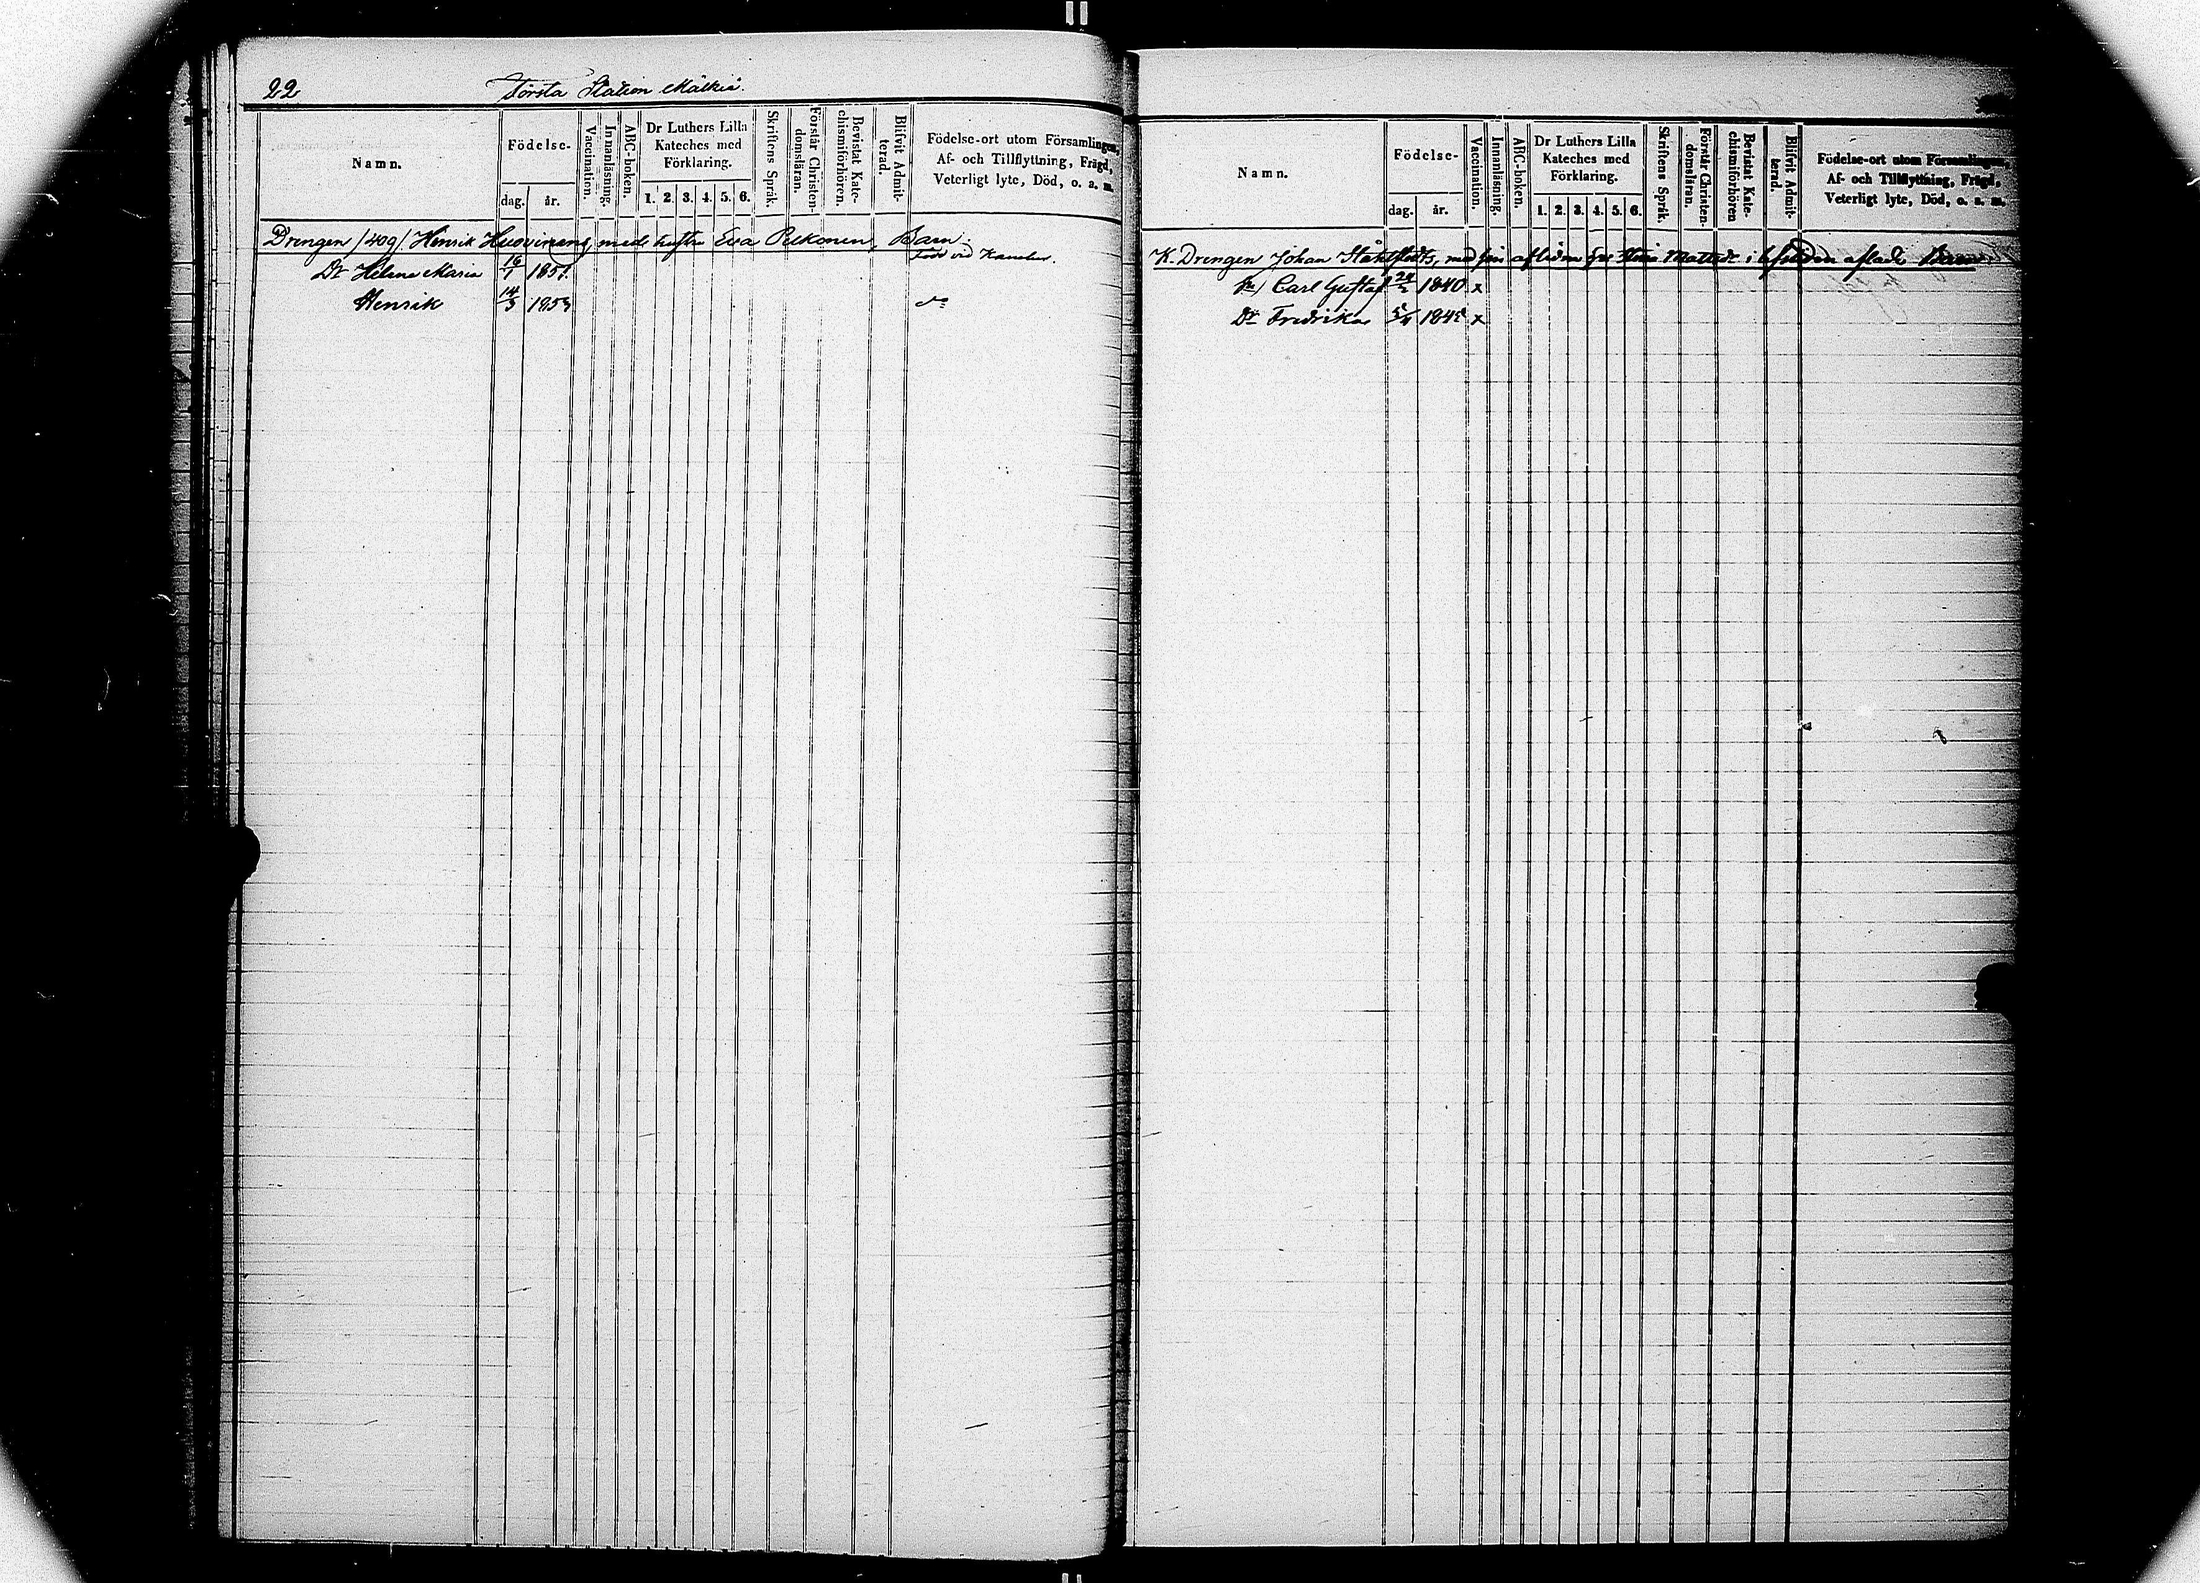 22
Första Station Mälkiä.
Namn.
Födelse-
dag.
år.
Vaccination.
Innanläsning.
ABC-boken.
Dr Luthers Lilla
Kateches med
Förklaring.
1. 2. 3. 4. 5. 6.
Skriftens Språk.
Förstår Christen-
domsläran.
Bevistat Kate-
chismiförhören.
Blifvit Admit-
terad.
Födelse-ort utom Församlingen,
Af- och Tillflyttning, Frägd,
Veterligt lyte, Död, o. a. m.
Drengen /409/ Henrik Huovinens, med hustru Eva Pelkonen, Barn.
Dr Helena Maria 16/1 1851. född vid Kanalen.
Henrik 14/3 1853 do
Namn.
Födelse-
dag.
år.
Vaccination.
Innanläsning.
ABC-boken.
Dr Luthers Lilla
Kateches med
Förklaring.
1. 2. 3. 4. 5. 6.
Skriftens Språk.
Förstår Christen-
domsläran.
Bevistat Kate-
chismiförhören
Blifvit Admit-
terad.
Födelse-ort utom Församlingen,
Af- och Tillflyttning, Frägd,
Veterligt lyte, Död, o. a. m.
K. Drengen Johan Ståhlstedts, med sin aflidna Stina Mattsdr i aflade Barn
Carl Gustaf 24/2 1840 x
Dr Fredrika 1845 x